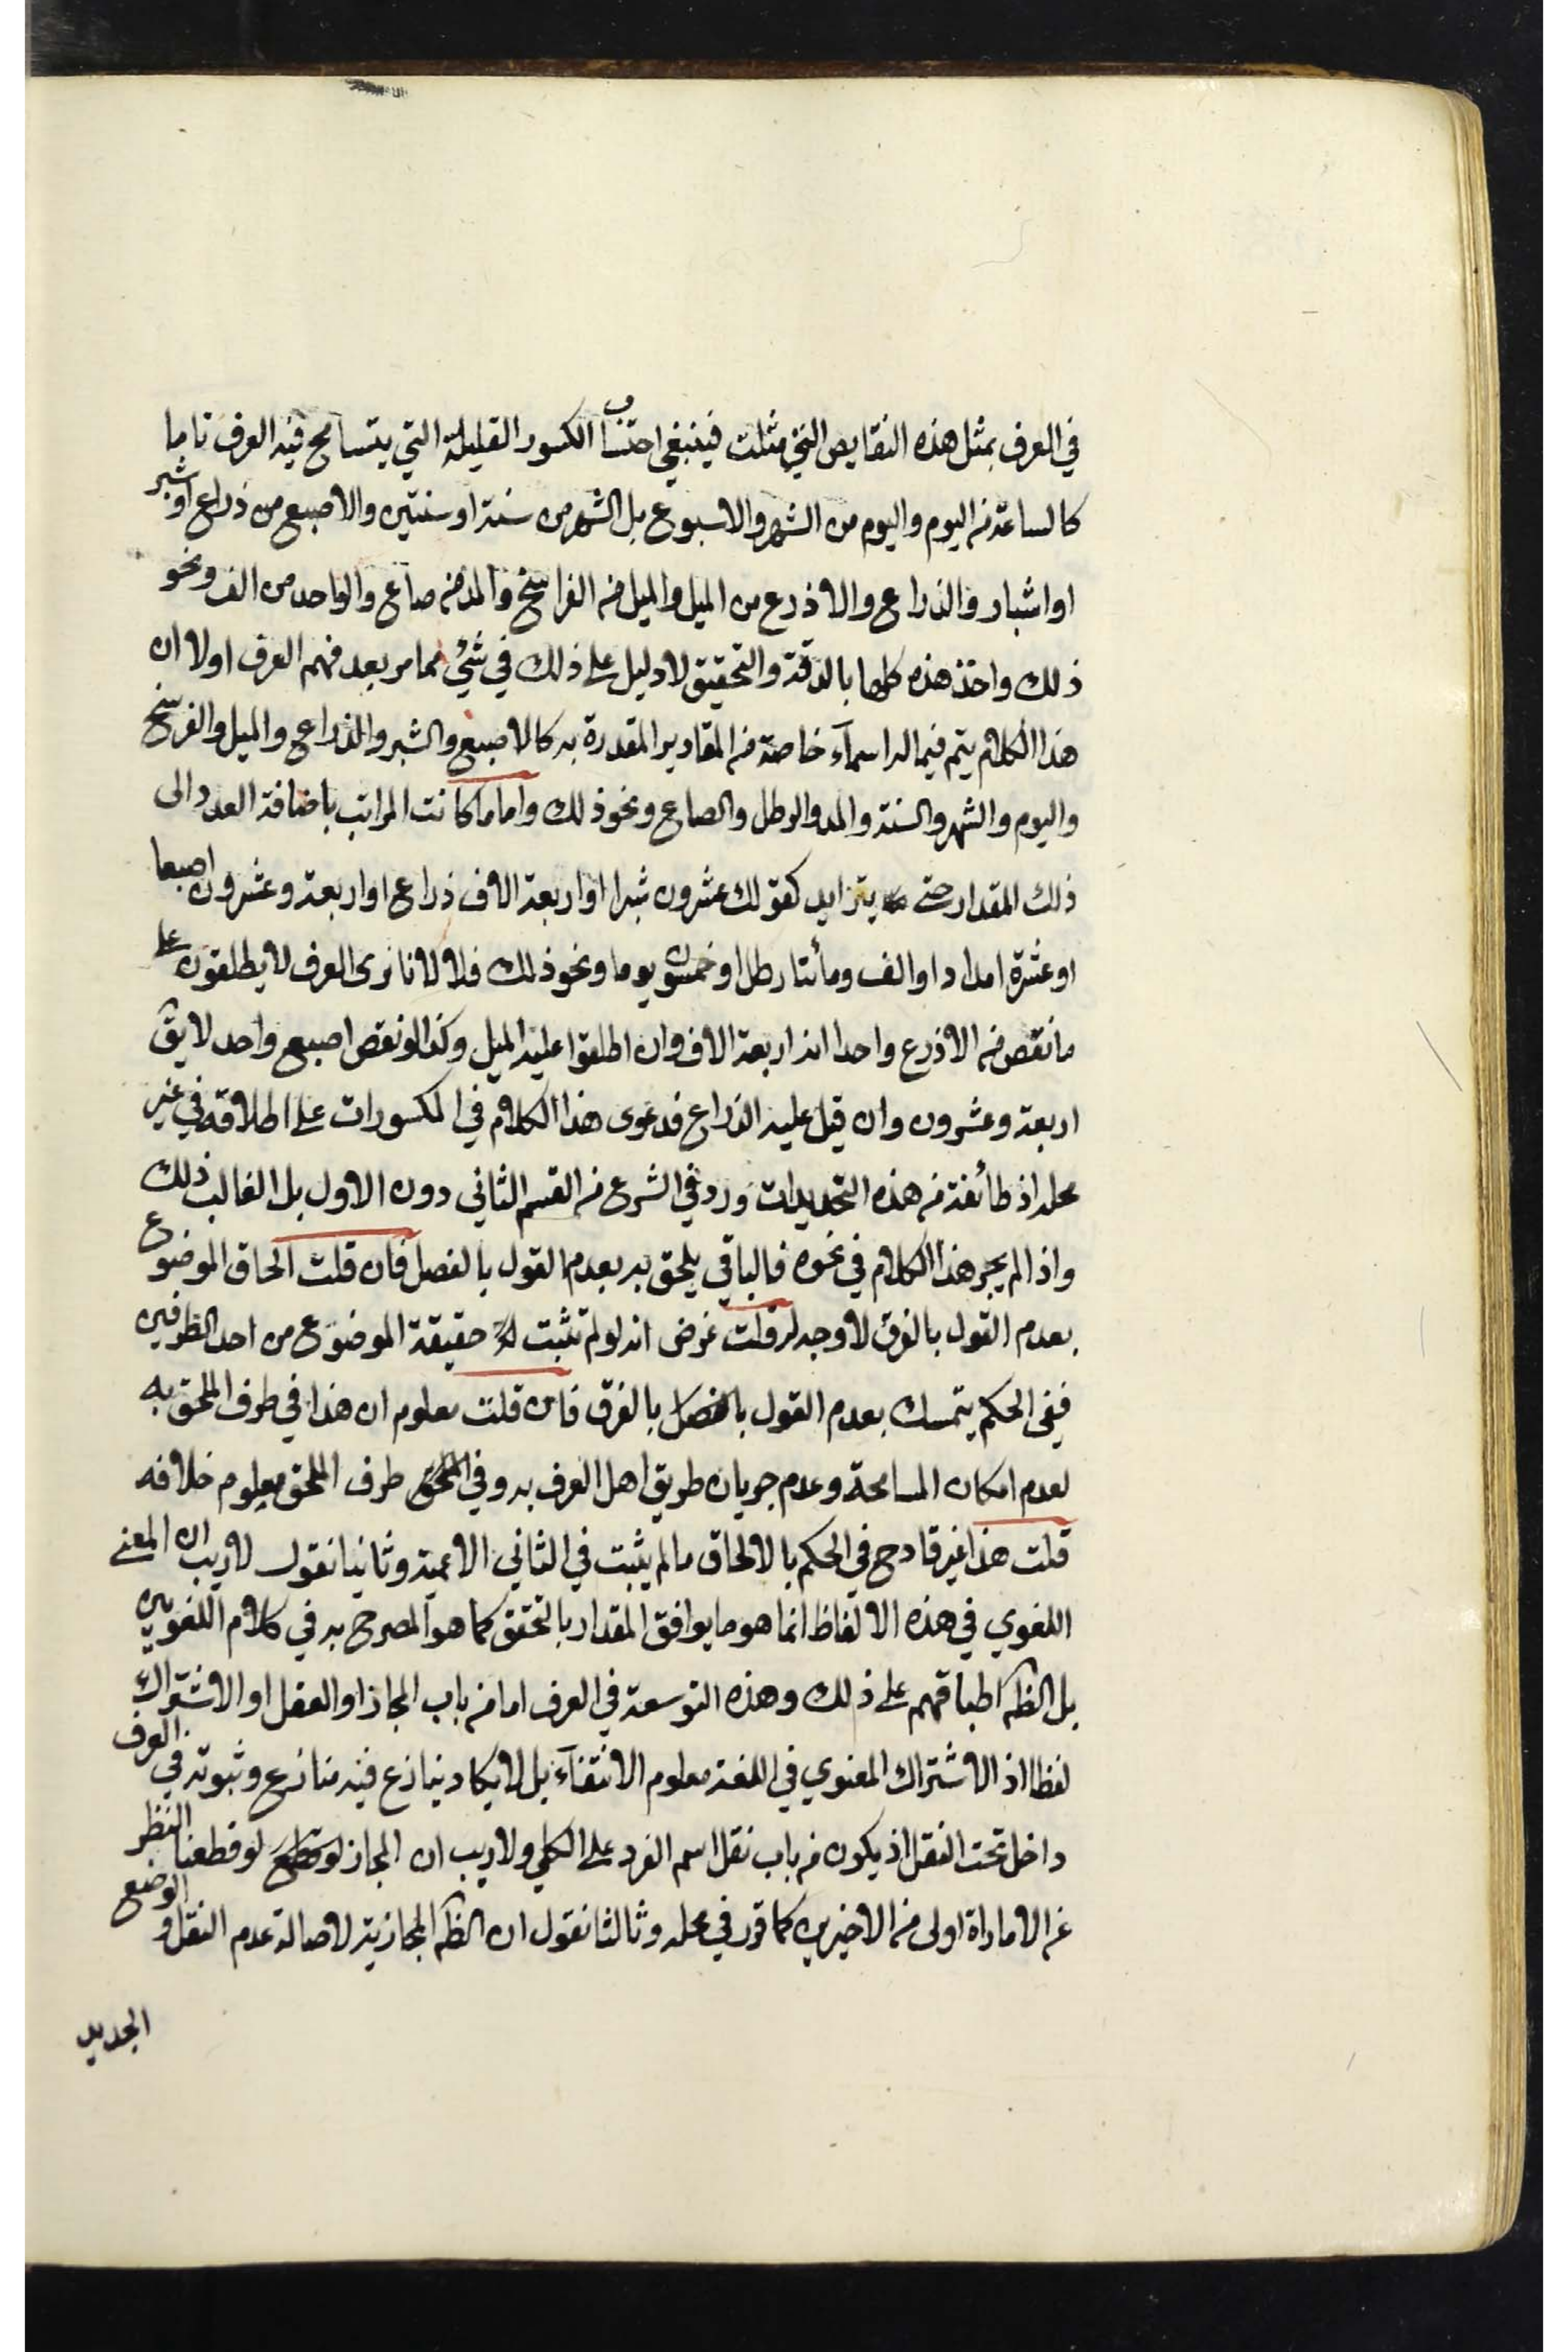 في العرف بمثل هذه النقايص التي مثلت فينبغي احتساب الكسور القليلة التي يتسامح فيه العرف تاما
كالساعة من اليوم واليوم من الشهر والاسبوع بل الشهر من سنة او سنتين والاصبع من ذراع او شبر
او اشبار والذراع والاذرع من الميل والميل من الفراسخ والمد من صاع والواحد من الف ونحو
ذلك واخذ هذه كلها بالدقة والتحقيق لا دليل على ذلك في شئ مما مر بعد فهم العرف اولا ان
هذا الكلام يتم فيما له اسمآء خاصة من المقادير المقدرة به كالاصبع والشبر والذراع والميل والفرسخ
واليوم والشهر والسنة والمد والرطل والصاع ونحو ذلك واما ما كانت المراتب باضافة العدد الى
ذلك المقدار حتى يتزايد كقولك عشرون شبرا او اربعة الاف ذراع او اربعة وعشرون اصبعا
او عشرة امداد او الف ومأتا رطل او خمسون يوما ونحو ذلك فلا لانا نرى العرف لا يطلقون على
ما نقص من الاذرع واحدا انه اربعة الاف وان اطلقوا عليه الميل وكذا لو نقص اصبع واحد لا يق
اربعة وعشرون وان قيل عليه الذراع فدعوى هذا الكلام في الكسورات على اطلاقه في غير
محله اذ طائفة من هذه التحديدات ورد في الشرع من القسم الثاني دون الاول بل الغالب ذلك
واذا لم يجر هذا الكلام في نحوه فالباقي يلحق به بعدم القول بالفصل فان قلت الحاق الموضوع
بعدم القول بالفرق لا وجه له قلت غرض انه لو لم تثبت حقيقة الموضوع من احد الطرفين
ففي الحكم يتمسك بعدم القول بالفصل بالفرق فان قلت معلوم ان هذا في طرف الملحق به
لعدم امكان المسامحة وعدم جريان طريق اهل العرف به وفي طرف الملحق معلوم خلافه
قلت هذا غير قادح في الحكم بالالحاق ما لم يثبت في الثاني الاعمية وثانيا نقول لا ريب ان المعنى
اللغوي في هذه الالفاظ انما هو ما يوافق المقدار بالتحقق كما هو المصرح به في كلام اللغويين
بل الظه اطباقهم على ذلك وهذه التوسعة في العرف اما من باب المجاز او النقل او الاشتراك
لفظا اذ الاشتراك المعنوي في اللغة معلوم الانتفآء بل لا يكاد ينازع فيه منازع وثبوته في العرف
داخل تحت النقل اذ يكون من باب نقل اسم الفرد على الكلي ولا ريب ان المجاز لو قطعنا النظر
عن الامارة اولى من الاخيرين كما قرر في محله وثالثا نقول ان الظه المجازية لاصالة عدم النقل والوضع
الجديد